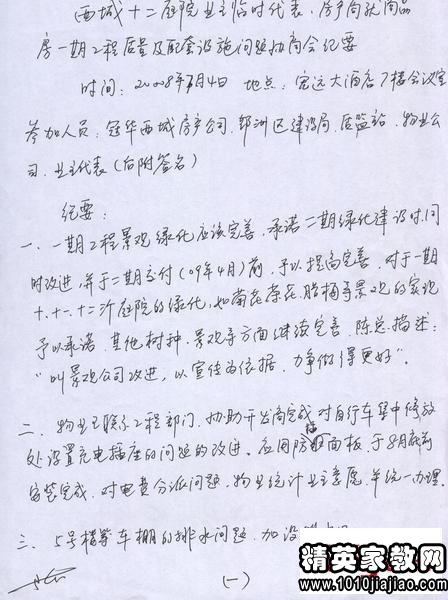 西城十二庭院业主临时代表、房产商就商品
房一期工程质量及配套设施问题协商会纪要
时间：2008年7月4日 地点：宏远大酒店7楼会议室
参加人员：冠华西城房产公司、鄞州区建设局、质监站、物业公
司、业主代表（后附签名）
纪要：
一、一期工程景观绿化应该完善，承诺二期绿化建设时，同
时改进，并于二期交付（09年4月）前，予以提高完善，对于一期
十、十一、十二个庭院的绿化，如菊花茶花腊梅等景观的实现
予以承诺，其他树种、景观等方面继续完善，陈总描述：
“叫景观公司改进，以宣传为依据，力争做得更好”。
二、物业已联系工程部门，协助开发商完成对自行车集中停放
处设置充电插座的问题的改进。应用防面板，于8月底前
安装完成，对电费分派问题，物业统计业主意愿，并统一办理。
三、5号楼等车棚的排水问题，加设
(一)
精英家教网
www.1010jiajiao.com